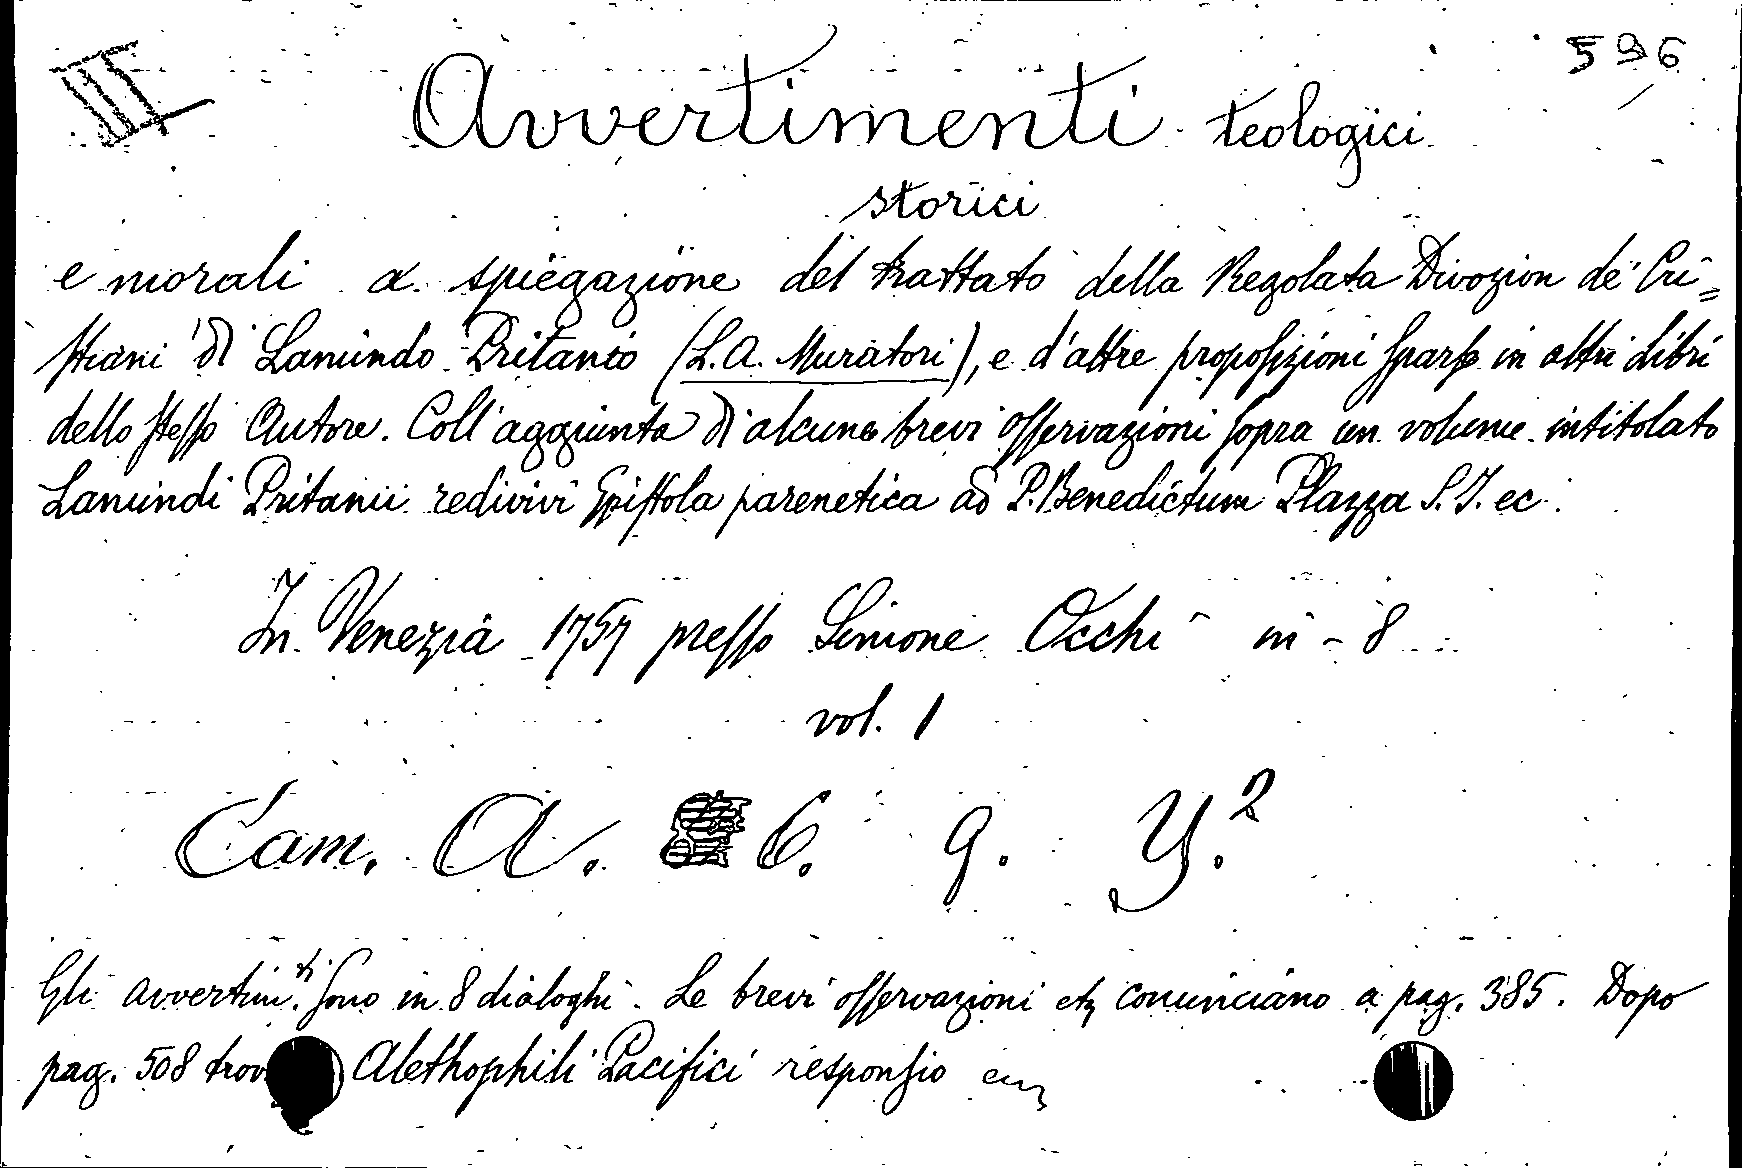 III 596
Avvertimenti teologici
storici
e morali a spiegazione del trattato della Regolata Divozion de' Cri=
stiani di Lamindo Pritanio (L. A. Muratori), e d'altre proposizioni sparse in altri Libri
dello stesso Autore. Coll'aggiunta di alcune brevi osservazioni sopra un volume intitolato
Lamindi Pritanii redivivi Epistola parenetica ad P. Benedictum Plazza S. J. ec.
In Venezia 1757 presso Simone Occhi in-8
vol. 1
Cam. A. 6. 9. Y.²
Gli avvertim.ti sono in 8 dialoghi. Le brevi osservazioni etc cominciano a pag. 385. Dopo
pag. 508 Alethophili Pacifici responsio